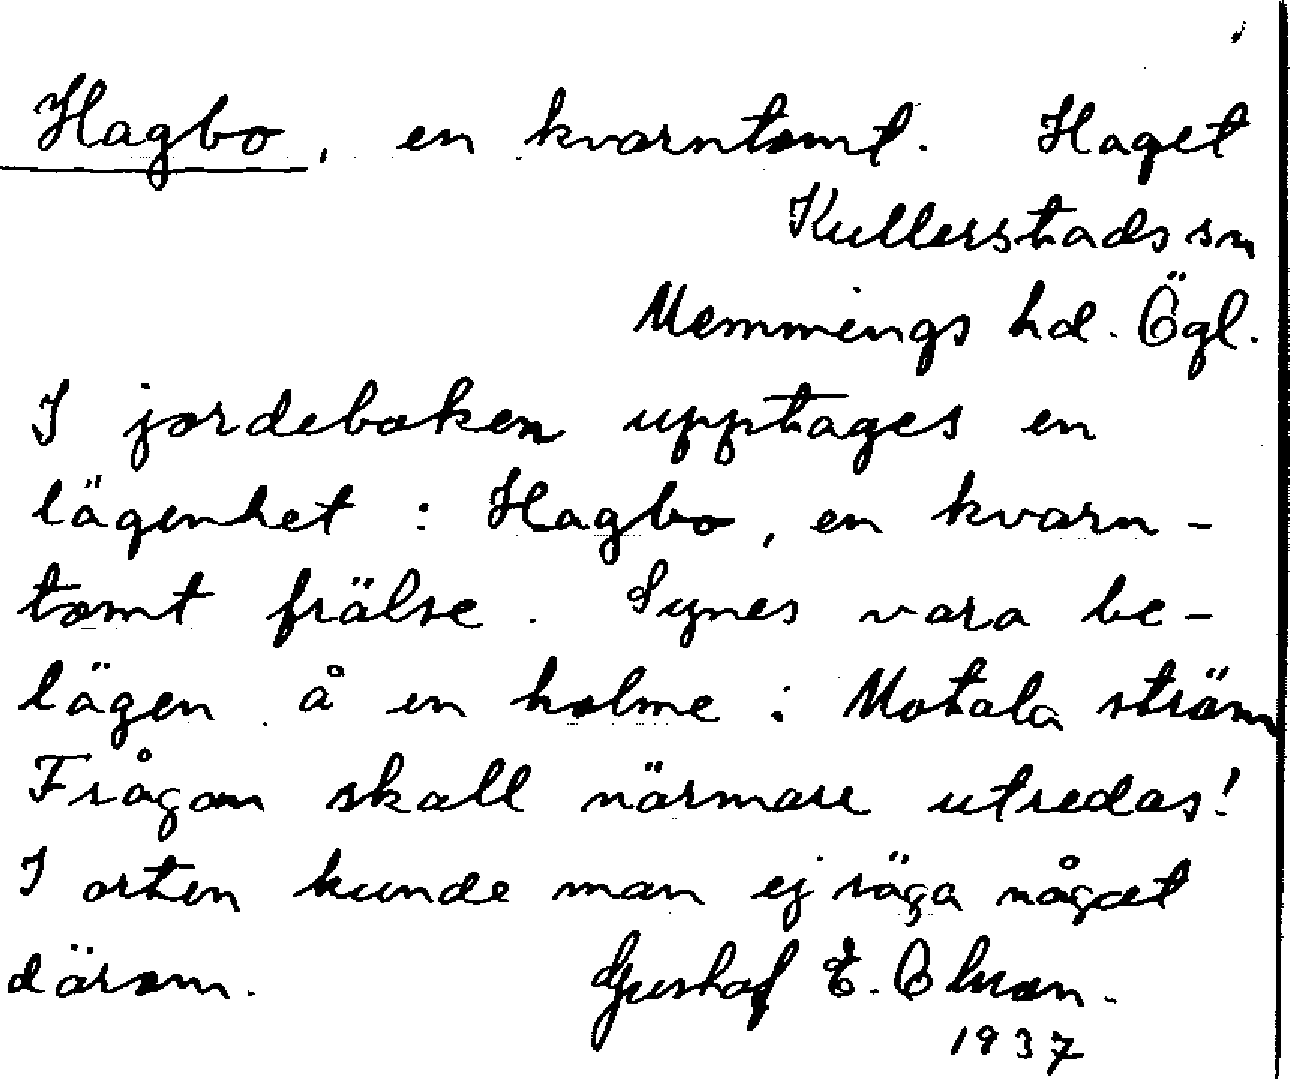 Hagbo, en kvarntomt. Haget
Kullerstads sn
Memmings hd. Ögl.
I jordeboken upptages en
lägenhet : Hagbo, en kvarn-
tomt frälse. Synes vara be-
lägen å en holme i Motala ström
Frågan skall närmare utredas!
I orten kunde man ej säga något
därom. Gustaf E. Olsson.
1937